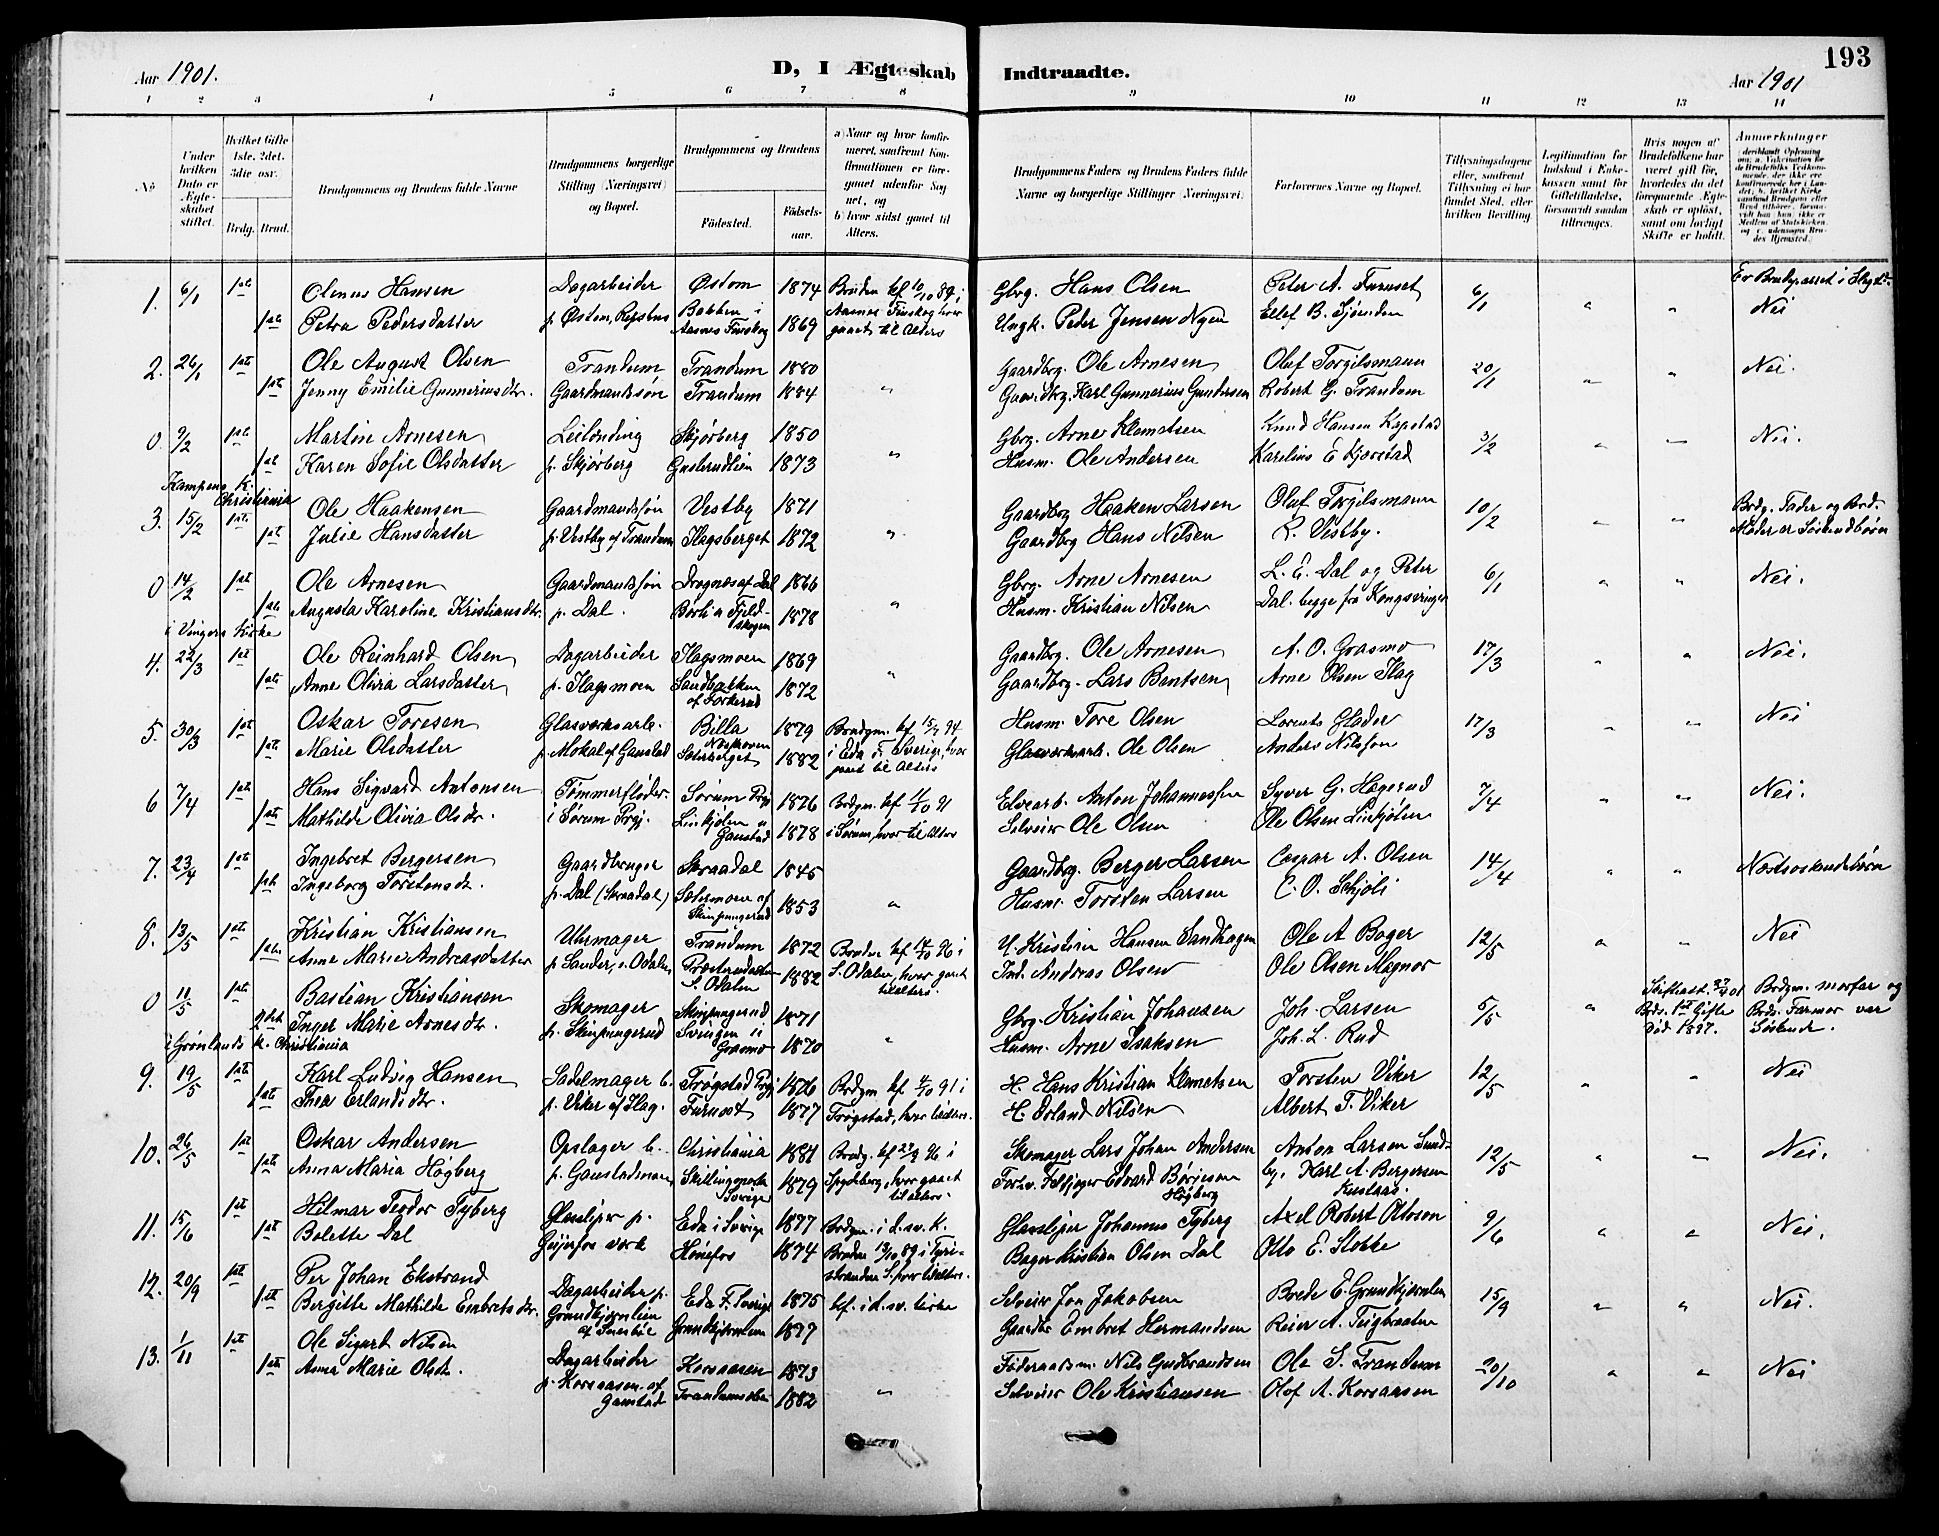 193
Aar 1901.
D, I Ægteskab Indtraadte.
Aar 1901
1 2 3 4 5 6 7 8 9 10 11 12 13 14
No
Under hvilken Dato er Ægteskabet stiftet.
Hvilket Gifte 1ste, 2det, 3die osv.
Brdg. Brud.
Brudgommens og Brudens fulde Navne
Brudgommens borgerlige Stilling (Næringsvei) og Bopæl.
Brudgommens og Brudens
Födested. Födselsaar.
a) Naar og hvor konfirmeret, saafremt Konfirmationen er foregaaet udenfor Sognet, og
b) hvor sidst gaaet til Alters.
Brudgommens Faders og Brudens Faders fulde Navne og borgerlige Stillinger (Næringsvei).
Forlovernes Navne og Bopæl.
Tillysningsdagene eller, saafremt Tillysning ei har fundet Sted, efter hvilken Bevilling
Legitimation for Indskud i Enkekassen samt for Giftetilladelse, forsaavidt saadan tiltrænges.
Hvis nogen af Brudefolkene har været gift för, hvorledes da det foregaaende Ægteskab er oplöst, samt om lovligt Skifte er holdt.
Anmærkninger
1. 6/1 1ste Olenus Hansen Dagarbeider Østom 1874 Bruden kf 10/10 89 i Gbrg. Hans Olsen Peter A. Furuset 6/1 " " Er Brudeparret i Slægt?
1ste Petra Pedersdatter p. Østom, Bakken i Aasnes Finskog 1869 Aasnes Finskog hvor gaaet til Alters Ungk. Peder Jensen Nyen Ellef B. Nei
2. 26/1 1ste Ole August Olsen Trandum Trandum 1880 Gaardbrg. Ole Arnesen Oluf Torgilsmann 20/1 " " Nei.
1ste Jenny Emilie Gunneriusdtr. Gaardmandssøn Trandum 1884 " Karl Gunnerius Gundersen Robert G. Trandum
0 9/2 1ste Martin Arnesen Leilænding Skjørberg 1850 Gbrg. Arne Klemetsen Knud Hansen Kapstad 3/2 " " Nei.
1ste Karen Sofie Olsdatter p. Skjørberg 1873 " Husm. Ole Andersen Karelius E Kjorstad
Kampens K. Christiania
3. 15/2 1ste Ole Haakensen Gaardmandssøn Vestby 1871 Gaardbrg Haaken Larsen Oluf Torgilsmann 10/2 " " Brdg. Fader og Brd.
1ste Julie Hansdatter p. Vestby af Trandum Flagsberget 1872 " Gaardbrg Hans Nilsen R. Vestby. Moder er Söskendebörn
0 14/2 1ste Ole Arnesen Gaardmandssøn Drognes af Dal 1866 Gbrg. Arne Arnesen L. E. Dal og Peter 6/1 " " Nei.
1ste Augusta Karoline Kristiansdtr. p. Dal. 1878 " Husm. Kristian Nilsen Dal. begge fra Kongsvinger
i Vinger Kirke
4. 22/3 1ste Ole Reinhard Olsen Dagarbeider Flagsmoen 1869 Gaardbrg. Ole Arnesen A. O. Grasmo 17/3 " " Nei.
1ste Anne Olivia Larsdatter p. Flagsmoen Sandbakken 1872 " Gaardbrg. Lars Bentsen Arne Olsen Flag
5. 30/3 1ste Oskar Toresen Glasværksarb. Billa 1879 Brudgm. kf. 15/7 94 Husm. Tore Olsen Lorents Gloder 17/3 " " Nei
1ste Marie Olsdatter p. Mokal af Gaustad 1882 i Eda i Sverige, hvor gaaet til Alters Glasværksarb. Ole Olsen Anders Nilsson
6 7/4 1ste Hans Sigvard Antonsen Tømmerfløder. Sørum Prgj 1876 Brdgm. kf 11/10 91 Elvearb. Anton Johannessen Syver G. Hagerud 7/4 " " Nei.
1ste Mathilde Olivia Olsdr. i Sørum Prgj. Linkjølen u Gaustad 1878 i Sørum, hvor til Alters Selveier Ole Olsen Ole Olsen Linkjølen
7. 23/4 1ste Ingebret Bergersen Gaardbruger Skraadal 1845 Gaardbrg. Berger Larsen Caspar A. Olsen 14/4 " " Næstsøskendebörn
1ste Ingeborg Torstensdr. p. Dal (Skraadal) Sætermoen af Skinpungerud 1853 " Husm. Torsten Larsen C. O. Schjöli
8. 13/5 1ste Kristian Kristiansen Uhrmager Trandum 1872 Bruden kf 14/10 96 i U. Kristian Hansen Sandhagen Ole A Bager 12/5 " " Nei
1ste Anne Marie Andreasdatter p. Sander, s. Odalen S. Odalen 1882 S. Odalen, hvor gaaet til alters. Ind. Andreas Olsen Ole Olsen Magnor
0 11/5 1ste Bastian Kristiansen Skomager Skinpungerud 1871 Gbrg. Kristian Johansen Joh. Larsen 5/5 " Brdgm. morfar og
2det Inger Marie Arnesdr. p. Skinpungerud Svingen i Grasmo 1870 " Husm. Arne Isaksen Joh. L. Rud Brds. 1st Gifte Död 1897. Brds. Farmor var Söskende.
i Grönlands K. Christiania
9. 19/5 1ste Karl Ludvig Hansen Sadelmager b. Trøgstad Prgj 1876 Brdgm kf 4/10 91 i H. Hans Kristian Klemetsen Torsten Viker 12/5 " " Nei
1ste Thea Erlandsdr. p. Viker af Flag. Furuset 1877 Trøgstad, hvor til alters. H. Erland Nilsen Albert T. Viker
10. 26/5 1ste Oskar Andersen Opslager b. Christiania 1881 Brdg. kf 27/9 96 i Skomager Lars Johan Andersen Anton Larsen Sund- 12/5 " " Nei.
1ste Anna Maria Högberg p. Gaustadmoen Skillingmark Sverige 1879 Spydeberg, hvor gaaet til alters. Edvard Börjeson Högberg by. Karl A. Bergersen
11. 15/6 1ste Hilmar Teodor Tyberg Glassliper p. Eda i Sverige 1877 Brdgm. i d. sv. K. Glassliper Johannes Tyberg Axel Robert Ottoson 9/6 " " Nei.
1ste Bolette Dal Geijerfos værk Hönefos 1874 Bruden 13/10 89 i Tyristranden S. hvor til alters. Bager Kristian Olsen Dal Otto E. Stokke
12. 20/9 1ste Per Johan Ekstrand Dagarbeider p. Eda F. Sverige 1875 kf. i d. sv. kirke Selveier Jon Jakobsen Brede E. Grundtjernlien 15/9 " " Nei.
1ste Bergitte Mathilde Embretsdr. Grundtjernlien 1877 Gaardbr Embret Hermandsen Reier A. Teigbraaten
13. 1/11 1ste Ole Sigurd Nilsen Dagarbeider Korsaasen 1873 Föderaadsm. Nils Gudbrandsen Ole S. Trandum 20/10 " " Nei
1ste Anna Marie Olsdr. p. Korsaasen af Gaustad 1882 " Selveier Ole Kristiansen Olof A. Korsaasen